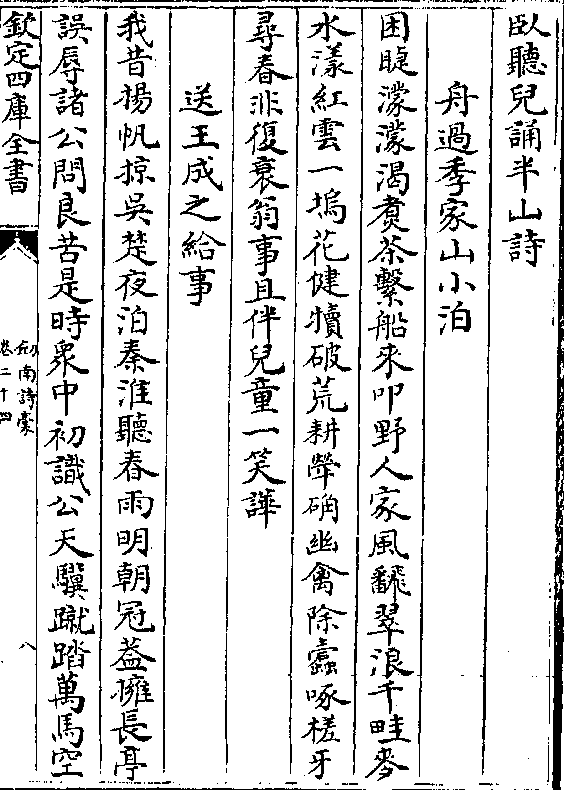 臥聽兒誦半山詩
舟過季家山小泊
困睫濛濛渴煑茶繫船來叩野人家風飜翠浪千畦麥
水漾紅雲一塢花健犢破荒耕犖确幽禽除蠧啄槎牙
尋春非復衰翁事且伴兒童一笑譁
送王成之給事
我昔揚帆掠吳楚夜泊秦淮聽春雨明朝冠葢擁長亭
誤辱諸公問良苦是時衆中初識公天驥蹴踏萬馬空
欽定四庫全書
劍南詩稾
卷二十四
八